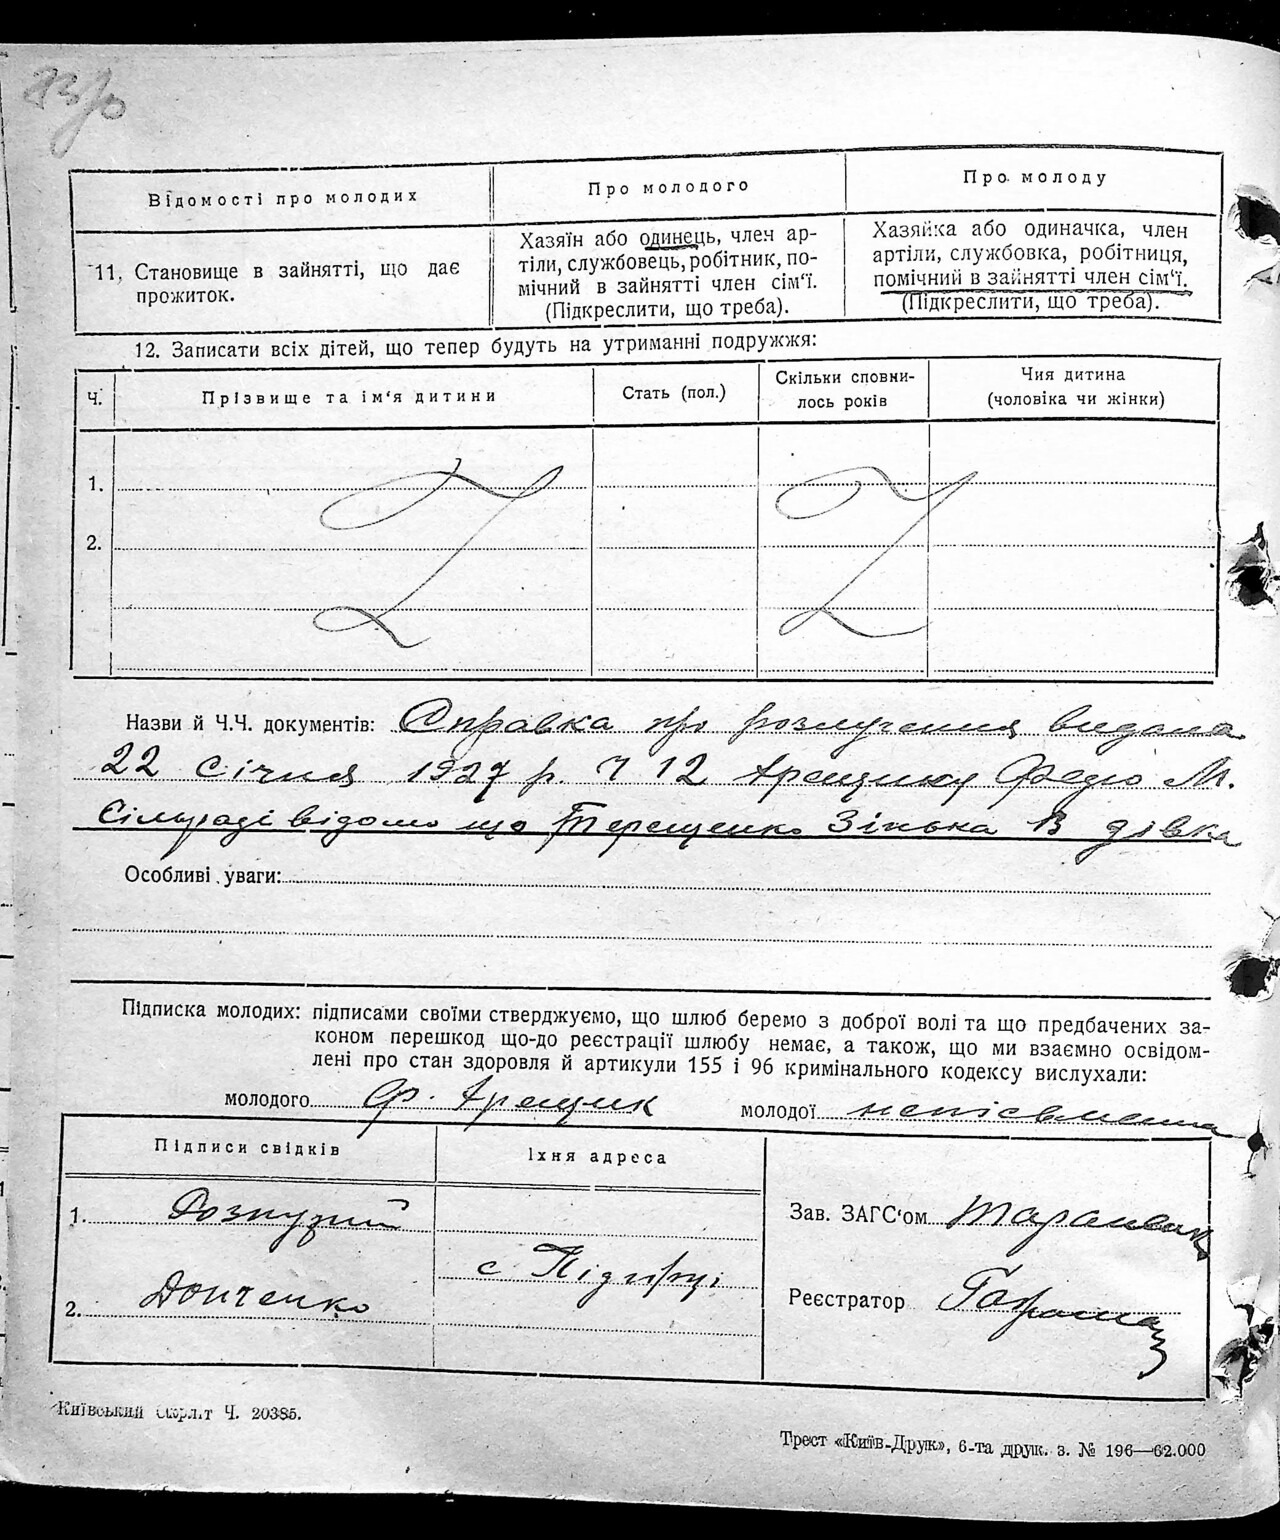 Відомості про молодих
Про молодого
Про молоду
11, Становище в зайнятті, що дає
прожиток.
Хазяїн або одинець, член ар-
тіли, службовець, робітник, по-
мічний в зайнятті член сім'ї.
(Підкреслити, що треба).
Хазяйка або одиначка, член
артіли, службовка, робітниця,
помічний в зайнятті член сім'ї.
(Підкреслити, що треба).
12. Записати всіх дітей, що тепер будуть на утриманні подружжя:
Ч.
Прізвище та ім'я дитини
Стать (пол.)
Скільки сповни-
лось років
Чия дитина
(чоловіка чи жінки)
1.
2.
Назви й Ч.Ч. документів: Справка про розлучення видана
22 січня 1927 р. Ч 12 Арещику Федю М.
Сільраді відомо що Терещенко Зінька В дівка
Особливі уваги:
Підписка молодих: підписами своїми стверджуємо, що шлюб беремо з доброї волі та що предбачених за-
коном перешкод що-до реєстрації шлюбу немає, а також, що ми взаємно освідом-
лені про стан здоровля й артикули 155 і 96 кримінального кодексу вислухали:
молодого Ф. Арещик молодої непісьменна
Підписи свідків
Їхня адреса
1.
с Підгірці
2. Донченко
Зав. ЗАГС'ом
Реєстратор
Київський Окрліт Ч. 20385.
Трест «Київ-Друк», 6-та друк. з. № 196—62.000